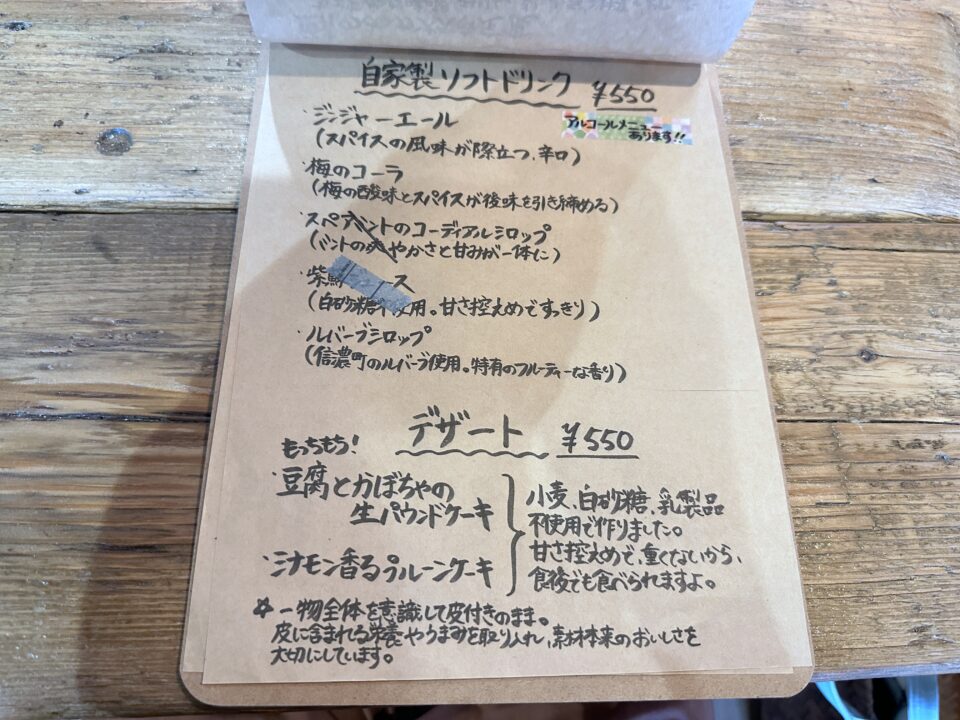 自家製ソフトドリンク ¥550
アルコールメニュー
あります!!
・ジンジャーエール
(スパイスの風味が際立つ、辛口)
・梅のコーラ
(梅の酸味とスパイスが後味を引き締める)
・スペアミントのコーディアルシロップ
(ミントの爽やかさと甘みが一体に)
・紫
(白砂糖不使用。甘さ控えめですっきり)
・ルバーブシロップ
(信濃町のルバーブ使用。特有のフルーティーな香り)
デザート ¥550
もっちもち!
・豆腐とかぼちゃの
生パウンドケーキ
・シナモン香るプルーンケーキ
小麦、白砂糖、乳製品
不使用で作りました。
甘さ控えめで、重くないから、
食後でも食べられますよ。
☆一物全体を意識して皮付きのまま。
皮に含まれる栄養やうまみを取り入れ、素材本来のおいしさを
大切にしています。